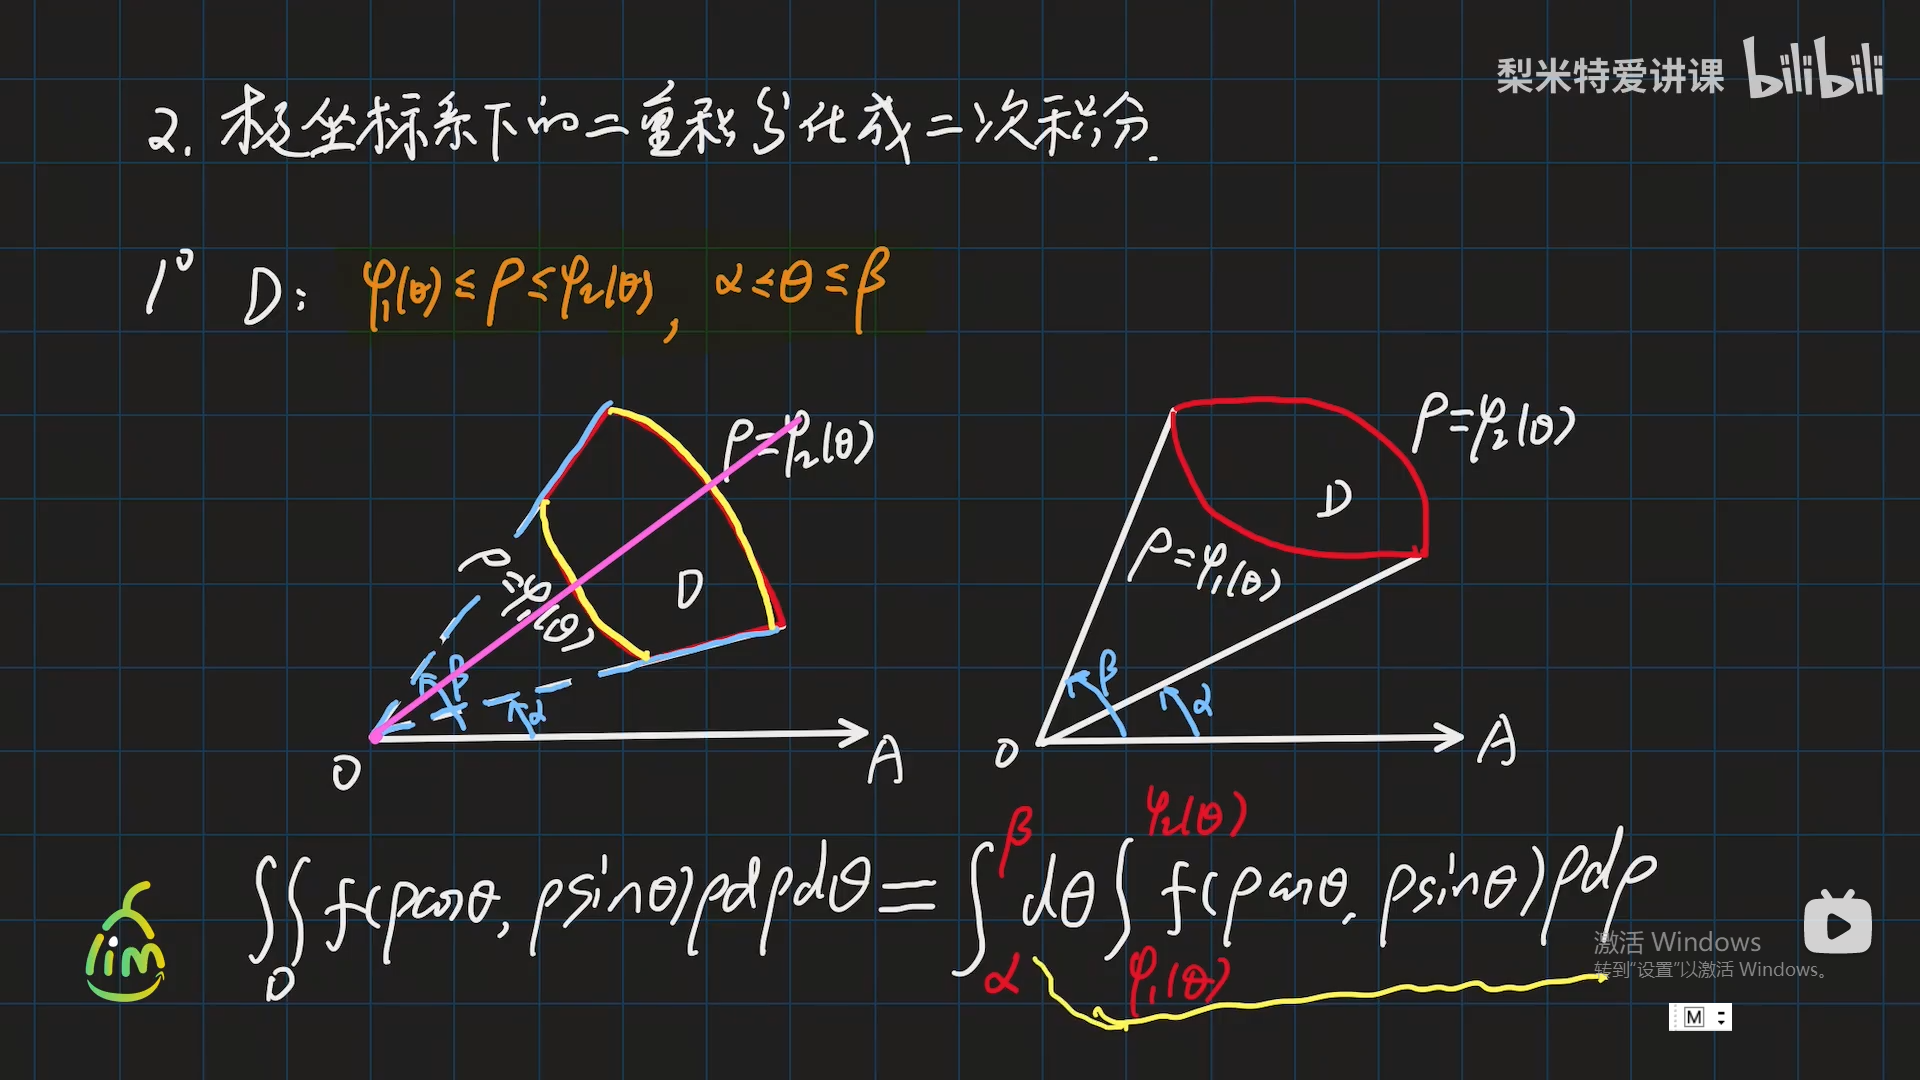 梨米特爱讲课 bilibili
2. 极坐标系下的二重积分化成二次积分.
1° D: φ₁(θ)≤ρ≤φ₂(θ), α≤θ≤β
ρ=φ₂(θ)
D
ρ=φ₁(θ)
β
α
O
A
ρ=φ₂(θ)
D
ρ=φ₁(θ)
β
α
O
A
∬_D f(ρcosθ, ρsinθ)ρdρdθ = ∫_α^β dθ ∫_{φ₁(θ)}^{φ₂(θ)} f(ρcosθ, ρsinθ)ρdρ
lim
激活 Windows
转到“设置”以激活 Windows。
M